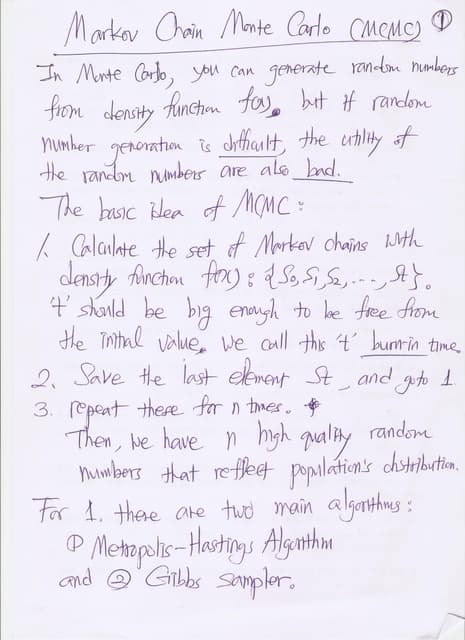 Markov Chain Monte Carlo (MCMC) ①
In Monte Carlo, you can generate random numbers
from density function f(x), but if random
number generation is difficult, the utility of
the random numbers are also bad.
The basic idea of MCMC :
1. Calculate the set of Markov chains with
density function f(x) : {S0, S1, S2, ..., St}.
't' should be big enough to be free from
the initial value, we call this 't' burn-in time.
2. Save the last element St, and goto 1
3. repeat these for n times.
Then, we have n high quality random
numbers that reflect population's distribution.
For 1, there are two main algorithms :
① Metropolis-Hastings Algorithm
and ② Gibbs sampler.